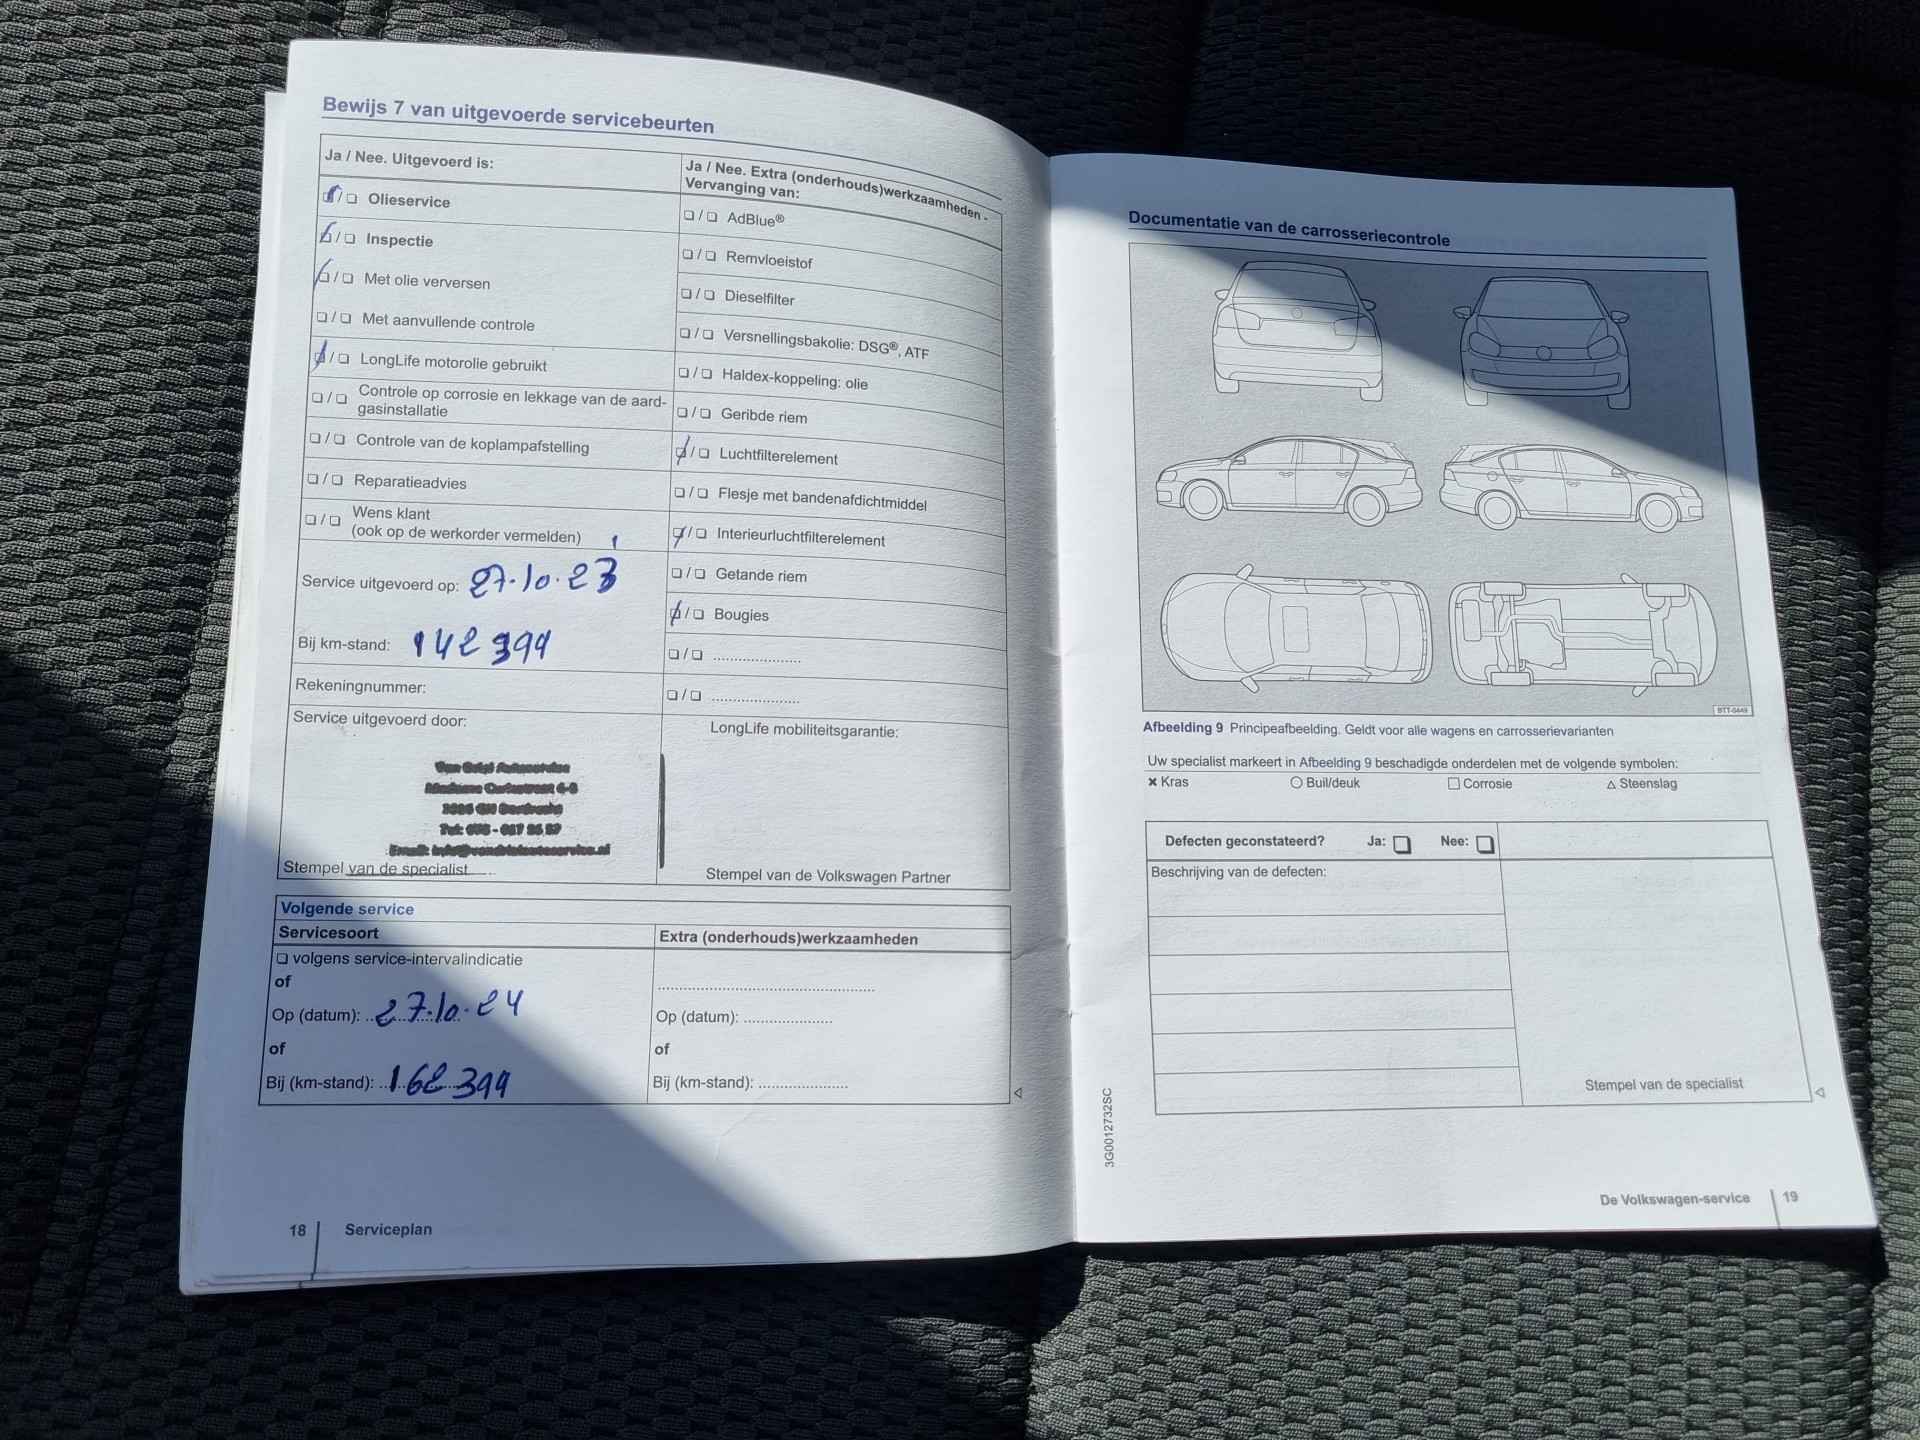 Bewijs 7 van uitgevoerde servicebeurten
Ja / Nee. Uitgevoerd is:
❏ / ❏ Olieservice
❏ / ❏ Inspectie
❏ / ❏ Met olie verversen
❏ / ❏ Met aanvullende controle
❏ / ❏ LongLife motorolie gebruikt
❏ / ❏ Controle op corrosie en lekkage van de aard-
gasinstallatie
❏ / ❏ Controle van de koplampafstelling
❏ / ❏ Reparatieadvies
❏ / ❏ Wens klant
(ook op de werkorder vermelden)
Service uitgevoerd op: 27.10.23
Bij km-stand: 142 399
Rekeningnummer:
Service uitgevoerd door:
Stempel van de specialist
Ja / Nee. Extra (onderhouds)werkzaamheden -
Vervanging van:
❏ / ❏ AdBlue®
❏ / ❏ Remvloeistof
❏ / ❏ Dieselfilter
❏ / ❏ Versnellingsbakolie: DSG®, ATF
❏ / ❏ Haldex-koppeling: olie
❏ / ❏ Geribde riem
❏ / ❏ Luchtfilterelement
❏ / ❏ Flesje met bandenafdichtmiddel
❏ / ❏ Interieurluchtfilterelement
❏ / ❏ Getande riem
❏ / ❏ Bougies
❏ / ❏ .....................
❏ / ❏ .....................
LongLife mobiliteitsgarantie:
Stempel van de Volkswagen Partner
Volgende service
Servicesoort
❏ volgens service-intervalindicatie
of
Op (datum): 27.10.24
of
Bij (km-stand): 162 399
Extra (onderhouds)werkzaamheden
..................................................
Op (datum): .....................
of
Bij (km-stand): .....................
18 Serviceplan
Documentatie van de carrosseriecontrole
BTT-0449
Afbeelding 9 Principeafbeelding. Geldt voor alle wagens en carrosserievarianten
Uw specialist markeert in Afbeelding 9 beschadigde onderdelen met de volgende symbolen:
✖ Kras ○ Buil/deuk □ Corrosie △ Steenslag
Defecten geconstateerd? Ja: ❏ Nee: ❏
Beschrijving van de defecten:
Stempel van de specialist
3G0012732SC
De Volkswagen-service 19